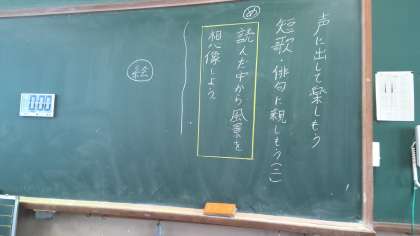 声に出して楽しもう
短歌・俳句に親しもう(二)
め
読んだ中から風景を
想像しよう
絵
0:00